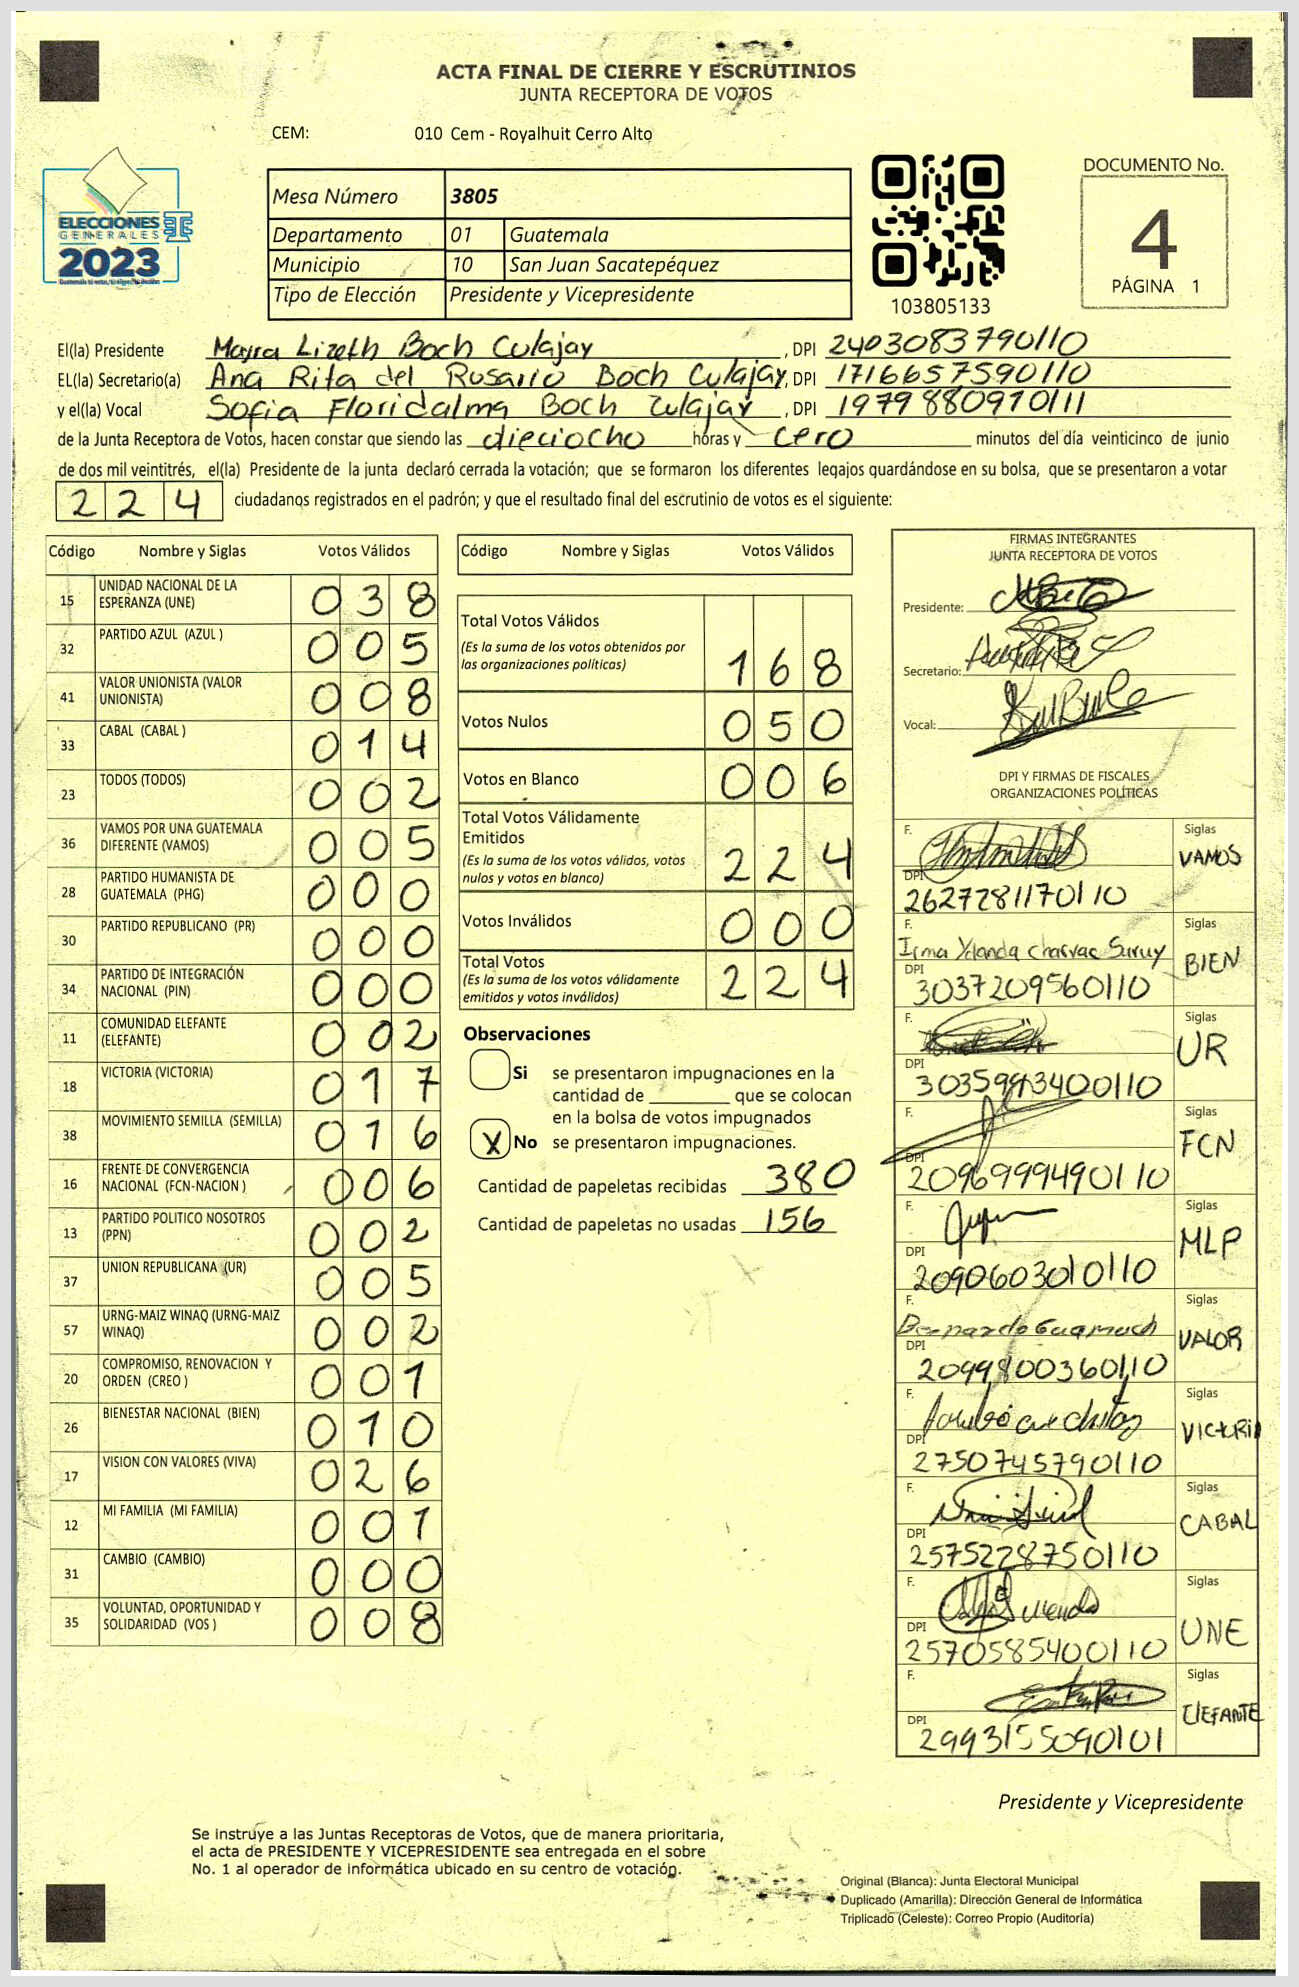 ACTA FINAL DE CIERRE Y ESCRUTINIOS
JUNTA RECEPTORA DE VOTOS
CEM: 010 Cem - Royalhuit Cerro Alto
ELECCIONES
GENERALES
2023
Mesa Número 3805
Departamento 01 Guatemala
Municipio 10 San Juan Sacatepéquez
Tipo de Elección Presidente y Vicepresidente
103805133
DOCUMENTO No.
4
PÁGINA 1
El(la) Presidente Mayra Lizeth Boch Culajay, DPI 2403083790110
EL(la) Secretario(a) Ana Rita del Rosario Boch Culajay, DPI 1716657590110
y el(la) Vocal Sofia Floridalma Boch Culajay, DPI 1979880910111
de la Junta Receptora de Votos, hacen constar que siendo las dieciocho horas y cero minutos del día veinticinco de junio
de dos mil veintitrés, el(la) Presidente de la junta declaró cerrada la votación; que se formaron los diferentes legajos guardándose en su bolsa, que se presentaron a votar
224 ciudadanos registrados en el padrón; y que el resultado final del escrutinio de votos es el siguiente:
Código Nombre y Siglas Votos Válidos
15 UNIDAD NACIONAL DE LA ESPERANZA (UNE) 038
32 PARTIDO AZUL (AZUL ) 005
41 VALOR UNIONISTA (VALOR UNIONISTA) 008
33 CABAL (CABAL ) 014
23 TODOS (TODOS) 002
36 VAMOS POR UNA GUATEMALA DIFERENTE (VAMOS) 005
28 PARTIDO HUMANISTA DE GUATEMALA (PHG) 000
30 PARTIDO REPUBLICANO (PR) 000
34 PARTIDO DE INTEGRACIÓN NACIONAL (PIN) 000
11 COMUNIDAD ELEFANTE (ELEFANTE) 002
18 VICTORIA (VICTORIA) 017
38 MOVIMIENTO SEMILLA (SEMILLA) 016
16 FRENTE DE CONVERGENCIA NACIONAL (FCN-NACION ) 006
13 PARTIDO POLITICO NOSOTROS (PPN) 002
37 UNION REPUBLICANA (UR) 005
57 URNG-MAIZ WINAQ (URNG-MAIZ WINAQ) 002
20 COMPROMISO, RENOVACION Y ORDEN (CREO ) 001
26 BIENESTAR NACIONAL (BIEN) 010
17 VISION CON VALORES (VIVA) 026
12 MI FAMILIA (MI FAMILIA) 001
31 CAMBIO (CAMBIO) 000
35 VOLUNTAD, OPORTUNIDAD Y SOLIDARIDAD (VOS ) 008
Código Nombre y Siglas Votos Válidos
Total Votos Válidos
(Es la suma de los votos obtenidos por
las organizaciones políticas) 168
Votos Nulos 050
Votos en Blanco 006
Total Votos Válidamente
Emitidos
(Es la suma de los votos válidos, votos
nulos y votos en blanco) 224
Votos Inválidos 000
Total Votos
(Es la suma de los votos válidamente
emitidos y votos inválidos) 224
Observaciones
Si se presentaron impugnaciones en la
cantidad de ________ que se colocan
en la bolsa de votos impugnados
X No se presentaron impugnaciones.
Cantidad de papeletas recibidas 380
Cantidad de papeletas no usadas 156
FIRMAS INTEGRANTES
JUNTA RECEPTORA DE VOTOS
Presidente:
Secretario:
Vocal:
DPI Y FIRMAS DE FISCALES
ORGANIZACIONES POLÍTICAS
F. Siglas
VAMOS
DPI
2627281170110
F. Siglas
Irma Yolanda Charvac Suruy
BIEN
DPI
3037209560110
F. Siglas
UR
DPI
3035993400110
F. Siglas
FCN
DPI
2096999490110
F. Siglas
MLP
DPI
2090603010110
F. Siglas
Bernardo Guamuch
VALOR
DPI
2099800360110
F. Siglas
VICTRIA
DPI
2750745790110
F. Siglas
CABAL
DPI
2575228750110
F. Siglas
UNE
DPI
2570585400110
F. Siglas
ElEFANTE
DPI
2993155090101
Presidente y Vicepresidente
Se instruye a las Juntas Receptoras de Votos, que de manera prioritaria,
el acta de PRESIDENTE Y VICEPRESIDENTE sea entregada en el sobre
No. 1 al operador de informática ubicado en su centro de votación.
Original (Blanca): Junta Electoral Municipal
Duplicado (Amarilla): Dirección General de Informática
Triplicado (Celeste): Correo Propio (Auditoría)